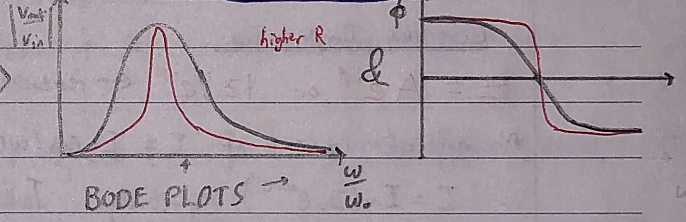 |Vout/Vin|
higher R
&
ϕ
ω/ω₀
BODE PLOTS →